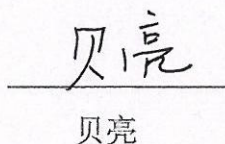 贝亮
贝亮